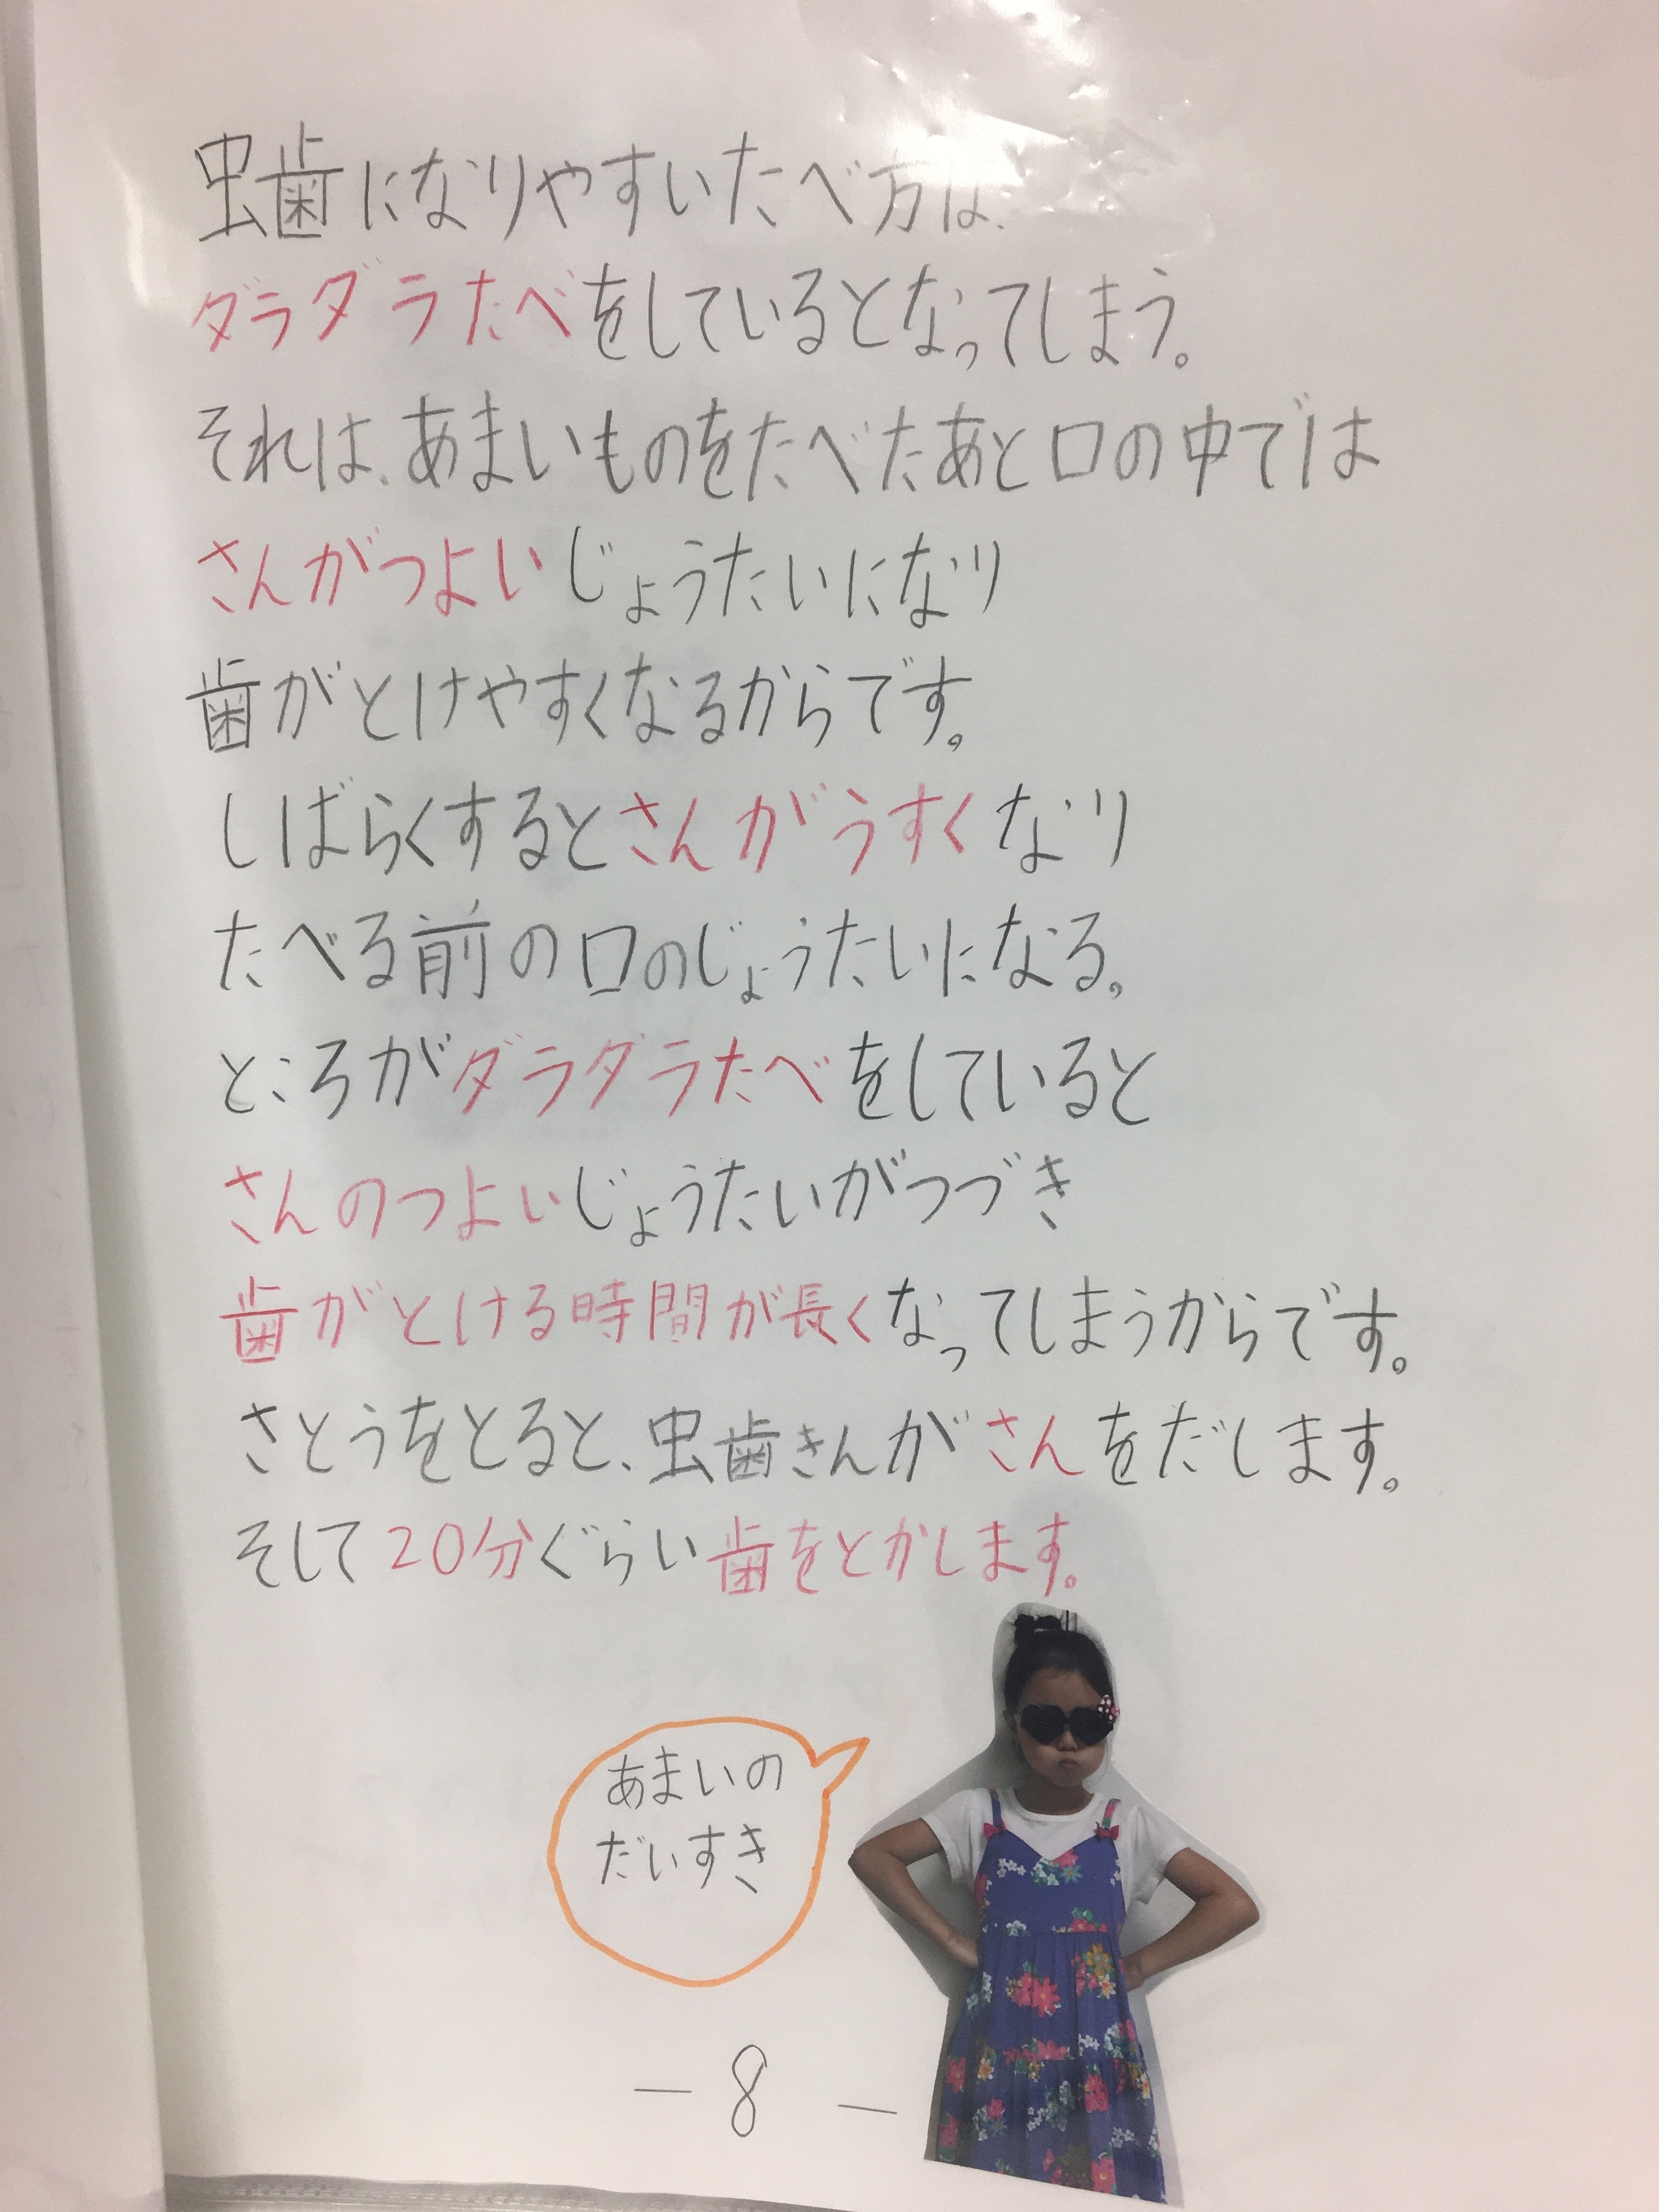 虫歯になりやすいたべ方は、
ダラダラたべをしているとなってしまう。
それは、あまいものをたべたあと口の中では
さんがつよいじょうたいになり
歯がとけやすくなるからです。
しばらくするとさんがうすくなり
たべる前の口のじょうたいになる。
ところがダラダラたべをしていると
さんのつよいじょうたいがつづき
歯がとける時間が長くなってしまうからです。
さとうをとると、虫歯きんがさんをだします。
そして20分ぐらい歯をとかします。
あまいの
だいすき
－8－